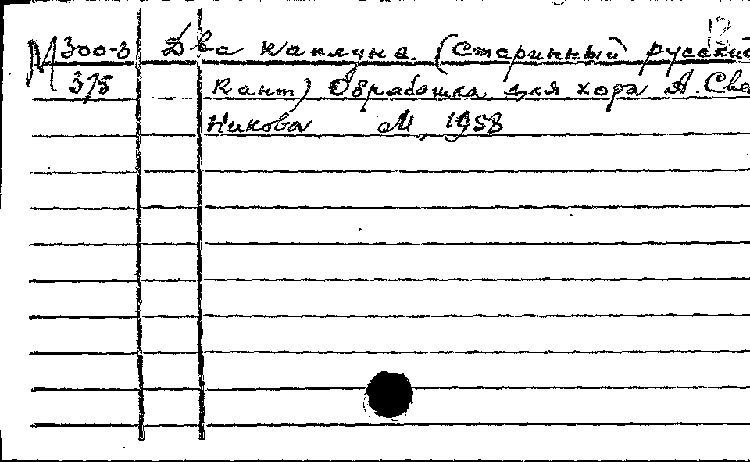 М 300-3 Два каплуна (Старинный русский
375 Кант) Обработка для хора А. Све
никова М, 1958